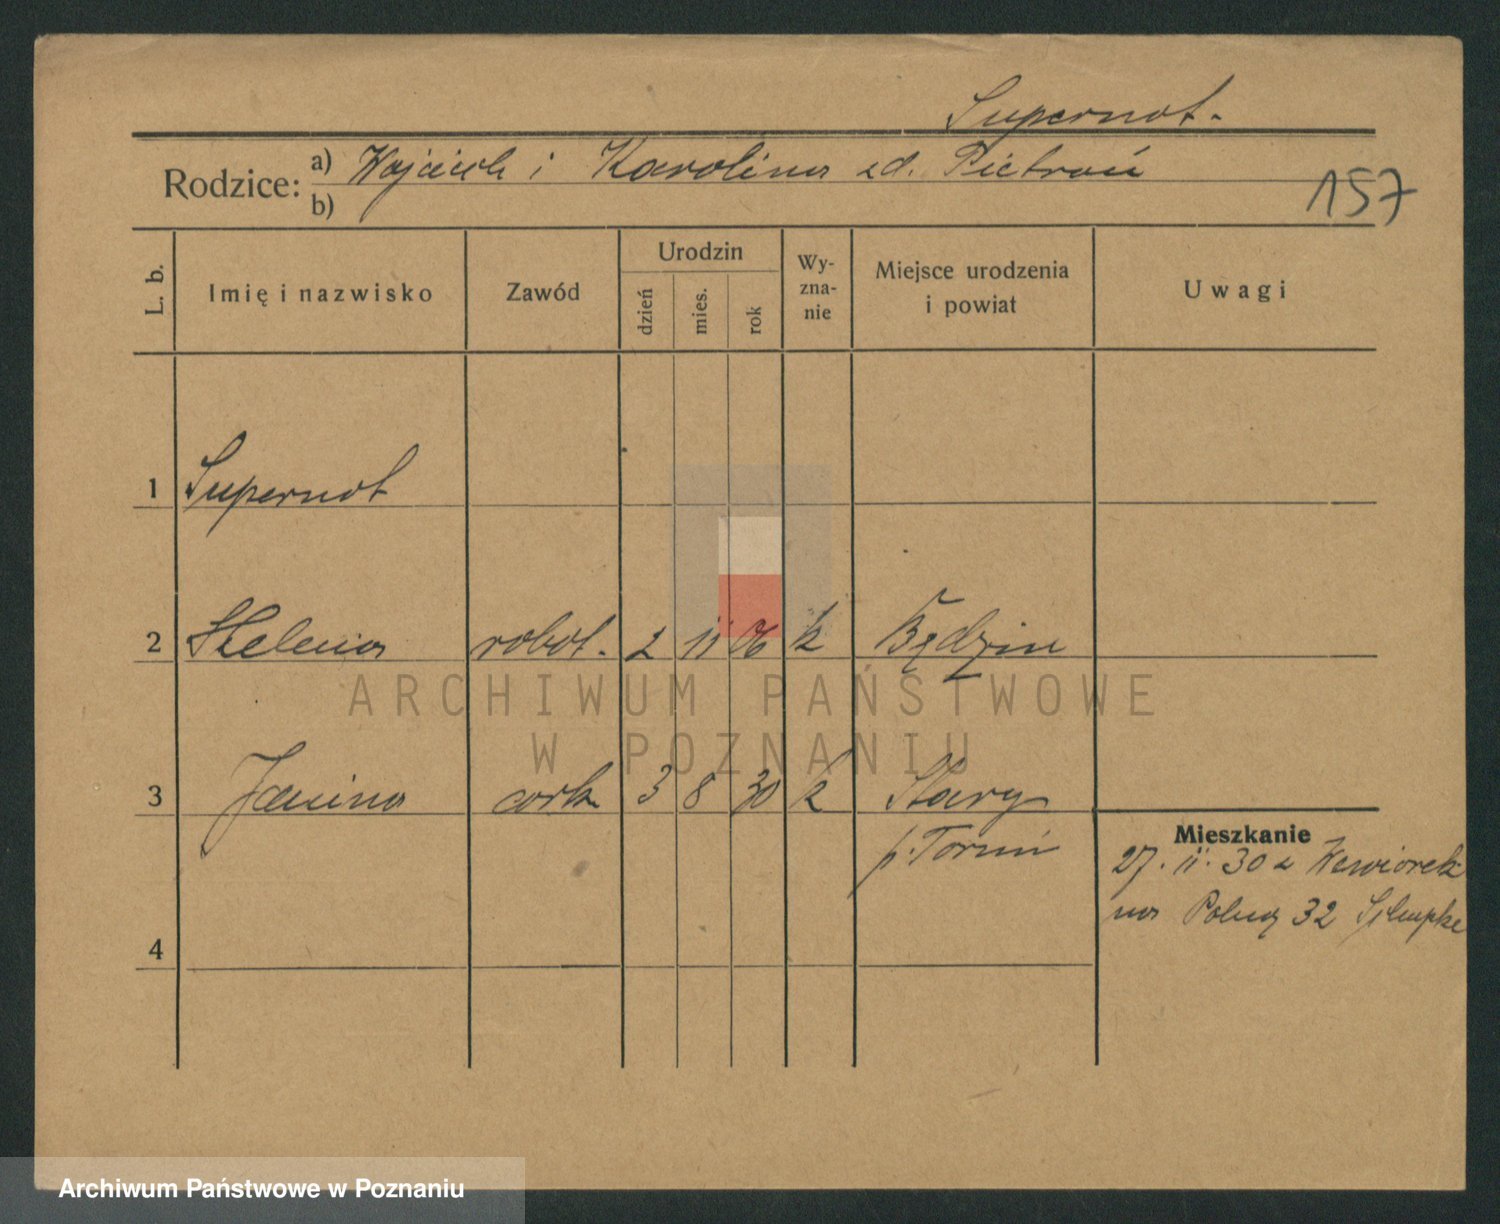 Supernot.
Rodzice: a) Wojciech i Karolina zd. Pietraś
b)
157
L. b.
Imię i nazwisko
Zawód
Urodzin
dzień
mies.
rok
Wy-
zna-
nie
Miejsce urodzenia
i powiat
Uwagi
1 Supernot
2 Helena robot. 2 11 06 k Będzin
ARCHIWUM PAŃSTWOWE
W POZNANIU
3 Janina córk 3 8 30 k Stary
p. Toruń
Mieszkanie
27. 11. 30 z Wewiórek
na Polną 32
4
Archiwum Państwowe w Poznaniu